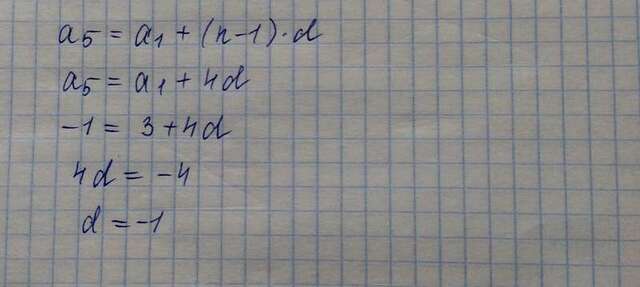 a₅ = a₁ + (n-1)·d
a₅ = a₁ + 4d
-1 = 3 + 4d
4d = -4
d = -1